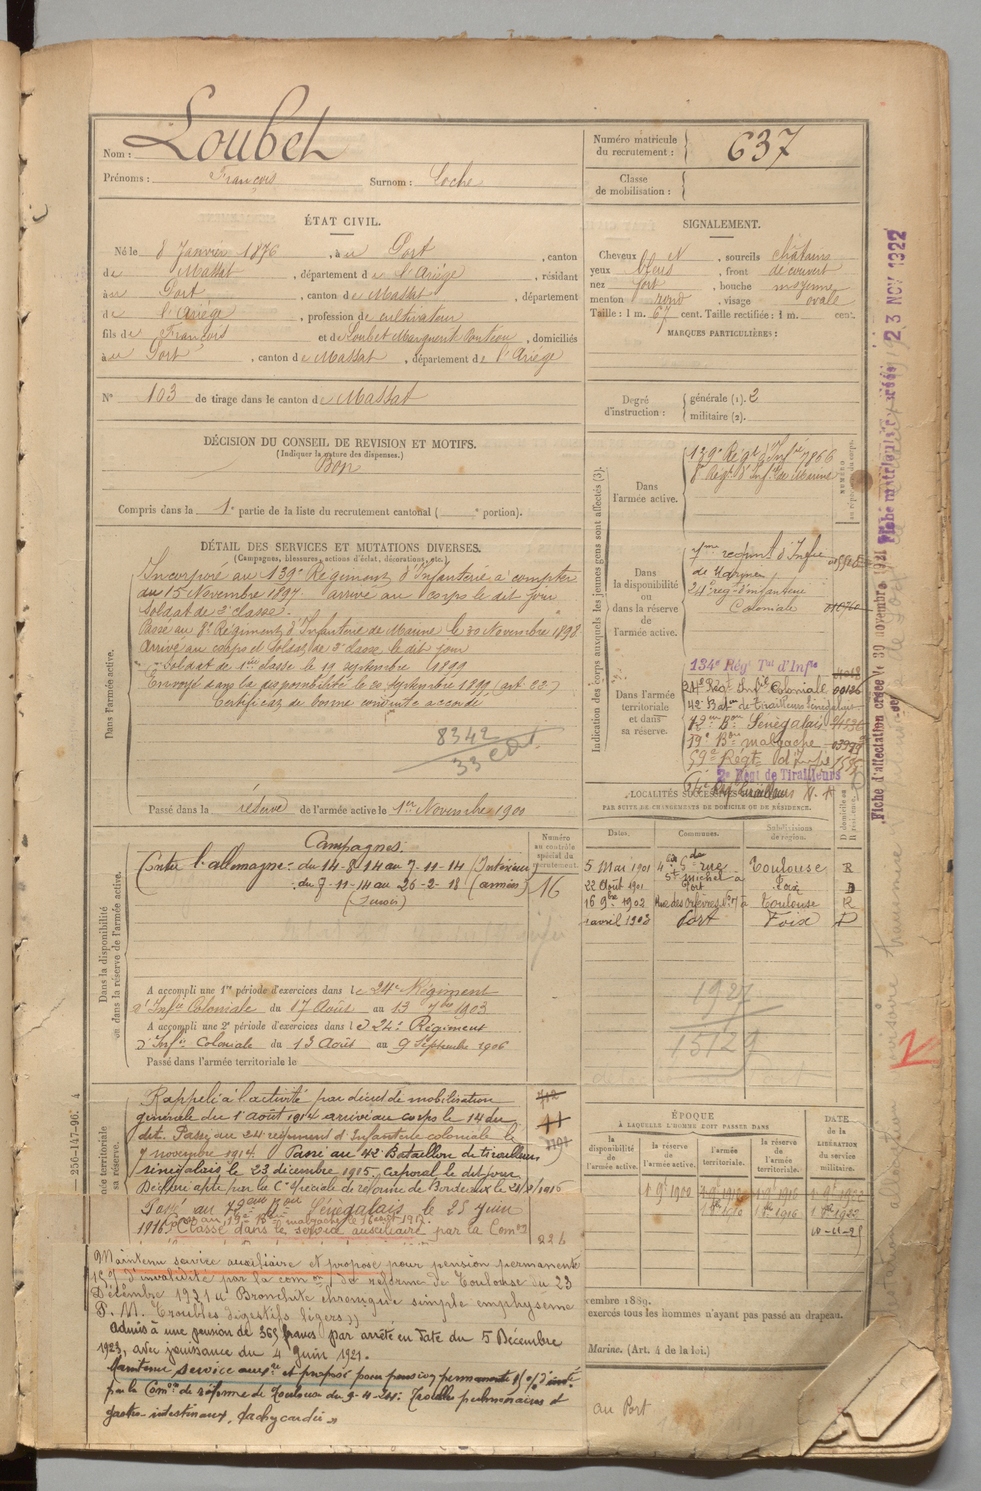 Nom : Loubet
Prénoms : François Surnom : Coche
Numéro matricule du recrutement : 637
Classe de mobilisation :
ÉTAT CIVIL.
Né le 8 Janvier 1876, à u Port, canton
de Massat, département de l'Ariège, résidant
à u Port, canton de Massat, département
de l'Ariège, profession de cultivateur
fils de François et de Loubet Marguerit Ponteou, domiciliés
à u Port, canton de Massat, département de l'Ariège
N° 103 de tirage dans le canton de Massat
DÉCISION DU CONSEIL DE REVISION ET MOTIFS.
(Indiquer la nature des dispenses.)
Bon
Compris dans la 1e partie de la liste du recrutement cantonal ( e portion).
SIGNALEMENT.
Cheveux et N, sourcils châtains
yeux bleus, front découvert
nez fort, bouche moyenne
menton rond, visage ovale
Taille : 1 m. 67 cent. Taille rectifiée : 1 m. cent.
MARQUES PARTICULIÈRES :
Degré d'instruction : générale (1). 2
militaire (2).
DÉTAIL DES SERVICES ET MUTATIONS DIVERSES.
(Campagnes, blessures, actions d'éclat, décorations, etc.)
Dans l'armée active.
Incorporé au 139e Régiment d'Infanterie à compter
du 15 Novembre 1897. arrivé au Corps le dit jour
Soldat de 2e classe.
Passé au 8e Régiment d'Infanterie de Marine le 30 Novembre 1898
Arrivé au corps et Soldat de 2e classe le dit jour
Soldat de 1ère classe le 19 septembre 1899
Envoyé dans la disponibilité le 20 septembre 1899 (art 22)
Certificat de bonne conduite accordé
8342
33
Passé dans la réserve de l'armée active le 1er Novembre 1900
Indication des corps auxquels les jeunes gens sont affectés (3).
NUMÉRO
Dans l'armée active.
139e Régt d'Infie 1866
8e Régt d'Infie de Marine
Dans la disponibilité ou dans la réserve de l'armée active.
d'Infie
de Marine
24e rég. d'infanterie
Coloniale
Dans l'armée territoriale et dans sa réserve.
134e Régt Tal d'Infie
24e Régt Infie Coloniale 00126
42e Batn de Tirailleurs Sénégalais
72e Bon Sénégalais
19e Bon malgache
59e Régt d'Infie
2e Régt de Tirailleurs
LOCALITÉS SUCCESSIVES
PAR SUITE DE CHANGEMENTS DE DOMICILE OU DE RÉSIDENCE.
Dates. Communes. Subdivisions de région. D domicile ou R
5 Mai 1901 Toulouse R
22 Août 1901 Port Foix D
16 9bre 1902 Rue des Orfèvres Toulouse R
1 avril 1903 Port Foix D
1927
15129
Dans la disponibilité ou dans la réserve de l'armée active.
Numéro au contrôle spécial du recrutement.
16
Campagnes :
Contre l'allemagne du 14-8-14 au 7-11-14 (Intérieur)
du 7-11-14 au 26-2-18 (armées)
A accompli une 1re période d'exercices dans le 24e Régiment
d'Infie Coloniale du 17 Août au 13 7bre 1903
A accompli une 2e période d'exercices dans le 24e Régiment
d'Infie Coloniale du 13 Août au 9 Septembre 1906
Passé dans l'armée territoriale le
Rappelé à l'activité par décret de mobilisation
générale du 1er Août 1914 arrivé au corps le 14 du
dit. Passé au 24e régiment d'Infanterie coloniale le
7 novembre 1914. Passé au 42e Bataillon de tirailleurs
sénégalais le 23 décembre 1915. Caporal le dit jour
Déclaré apte par la Con spéciale de réforme de Bordeaux le 24/2/1916
Passé au 72eme Bon Sénégalais le 25 Juin
1916. Classé dans le service auxiliaire par la Comon
Maintenu service auxiliaire et proposé pour pension permanente
15 % d'invalidité par la comon de réforme de Toulouse du 23
Décembre 1921 « Bronchite chronique simple emphysème
P. M. Troubles digestifs légers »
Admis à une pension de 365 francs par arrêté en date du 5 Décembre
1923, avec jouissance du 4 Juin 1921.
Maintenu service auxre et proposé pour pension permanente 15 % d'inv.
par la Comon de réforme de Toulouse du 9-4-24 : Troubles pulmonaires et
gastro-intestinaux, tachycardie »
ÉPOQUE
À LAQUELLE L'HOMME DOIT PASSER DANS
la disponibilité de l'armée active. la réserve de l'armée active. l'armée territoriale. la réserve de l'armée territoriale. DATE de la LIBÉRATION du service militaire.
1 9bre 1900
10-11-25
cembre 1889.
exercés tous les hommes n'ayant pas passé au drapeau.
Marine. (Art. 4 de la loi.)
au Port
256-147-96. 4
Fiche d'affectation créée le 29 novembre 1921
Fiche matricule créée 23 NOV 1922